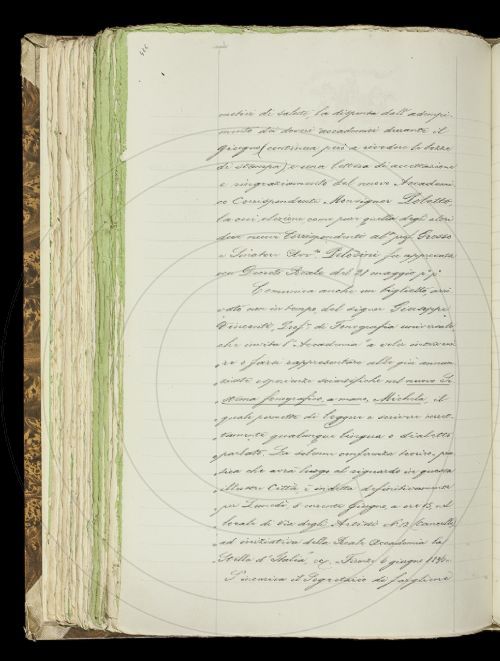 motivi di salute, la dispensa dall'adempi-
mento dei doveri accademici durante il
Giugno (continua però a rivedere le bozze
di stampa) e una lettera di accettazione
e ringraziamento del nuovo Accademi-
co Corrispondente Monsignor
la cui elezione come pur quella degli altri
due nuovi Corrispondenti al prof. Grosso
e Senatore Avv. fu approvata
con Decreto Reale del 21 maggio p.p.
Comunica anche un biglietto, arri-
vato non in tempo, del signor Giuseppe
Vincenti, Prof. di Fonografia universale
che invita l'Accademia a voler interveni-
re o farsi rappresentare alle già annun-
ziate esperienze scientifiche sul nuovo Si-
stema fonografico, a mano, Michela, il
quale permette di leggere e scrivere corret-
tamente qualunque lingua o dialetto
parlato. La solenne conferenza teorico, pra-
tica che avrà luogo al riguardo in questa
illustre Città, è indetta definitivamente
per Lunedì, corrente Giugno, a ore nel
locale di Via degli Artisti N. 2, Cancello,
ad iniziativa della Reale Accademia la
Stella d'Italia Firenze 6 giugno
S'incarica il Segretario di fargliene